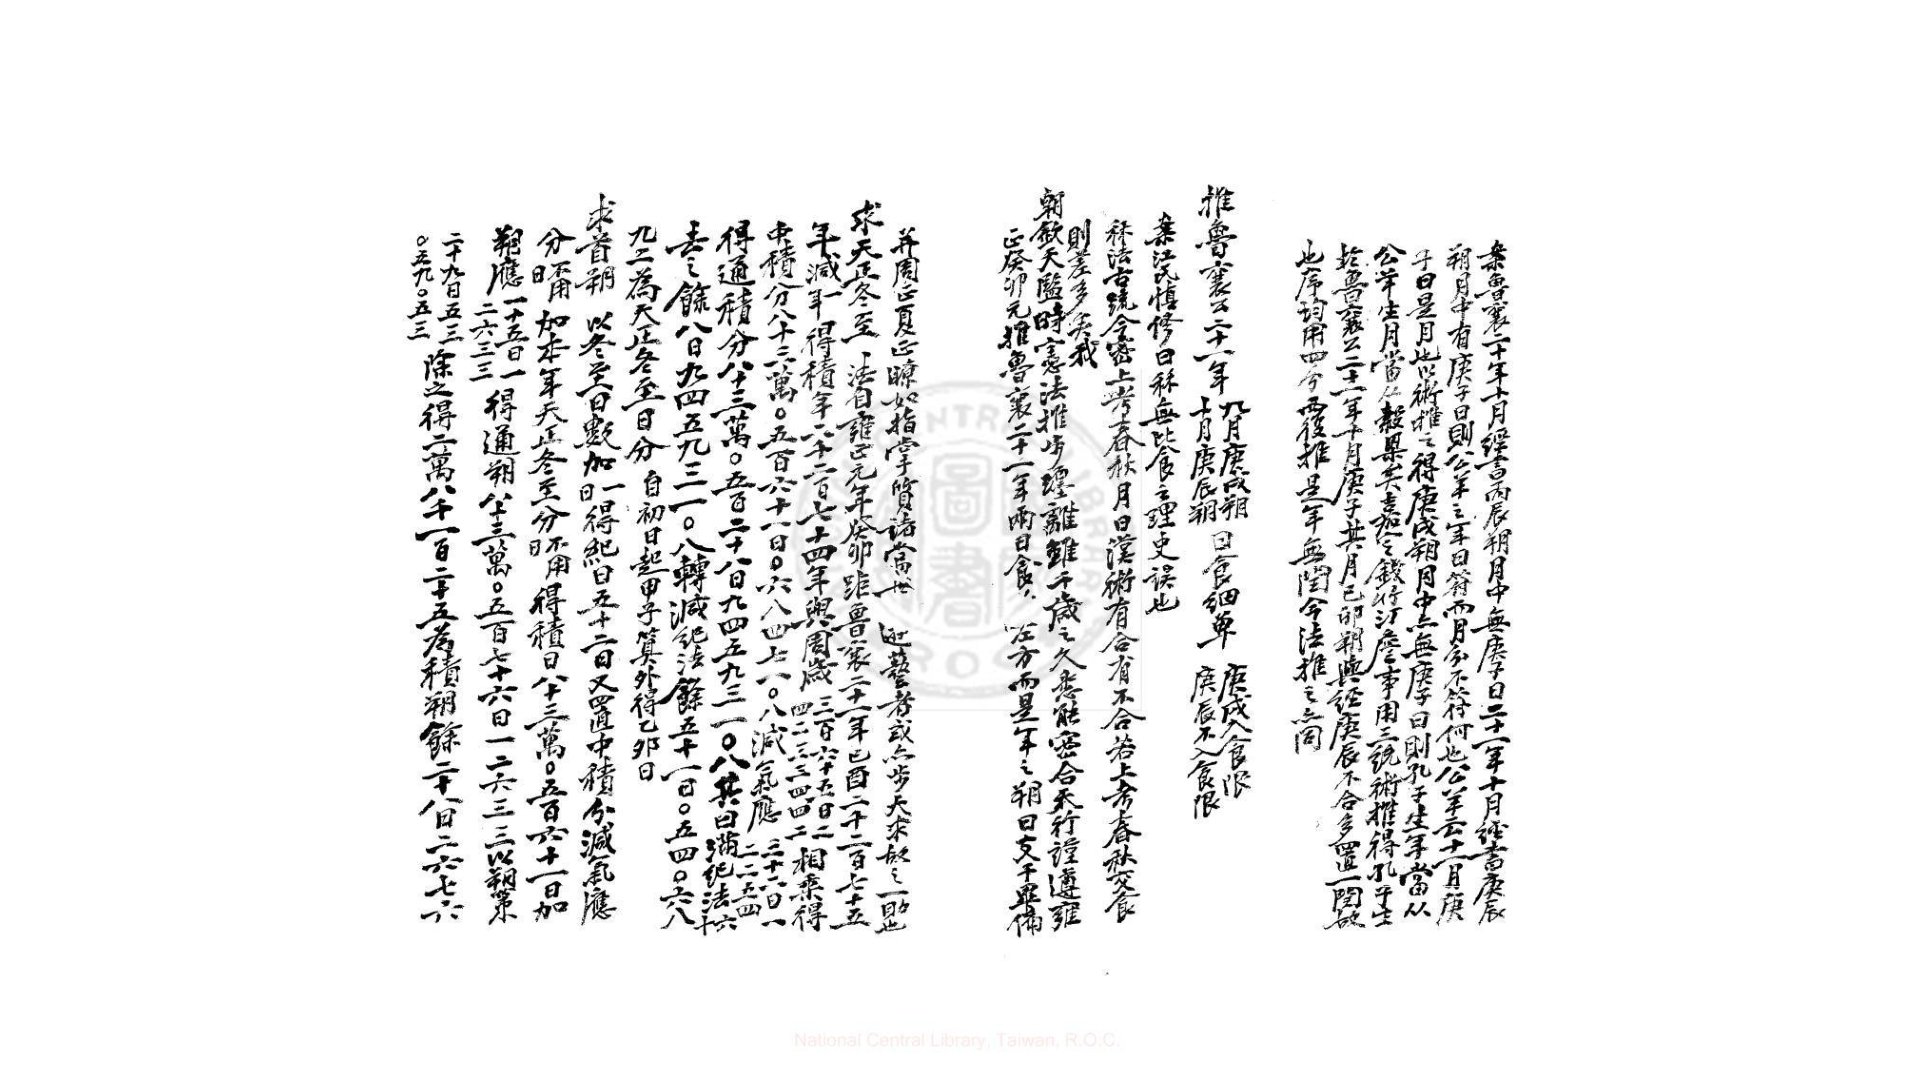 案魯襄二十年十月經書丙辰朔月中無庚子日二十一年十月經書庚辰
朔月中有庚子日則公羊之年日符而月分不符何也公羊云十一月庚
子日是月也以術推之得庚戌朔月中亦無庚子日則孔子生年當从
公羊生月當从穀梁矣嘉定錢詹事用三統術推得孔子生
於魯襄公二十一年十月庚子其月己卯朔與經庚辰不合多置一閏故
也序均用四分而復推是年無閏今法推之亦同
推魯襄公二十一年 九月庚戌朔 十月庚辰朔 日食細草 庚戌入食限 庚辰不入食限
案江氏慎修曰秝無比食之理史誤也
秝法古疏今密上考春秋月日漢術有合有不合若上考春秋交食
則差多矣我
朝欽天監時憲法推步躔離雖千歲之久悉能密合天行謹遵雍
正癸卯元推魯襄二十一年兩日食 左方而是年之朔日支干畢備
并周正夏正瞭如指掌質諸當世 遊藝者或亦步天求故之一助也
求天正冬至 法自雍正元年癸卯距魯襄二十一年己酉二千二百七十五
年減一年得積年二千二百七十四年與周歲 三百六十五日二四二三三四四二 相乘得
中積分八十三萬〇五百六十一日〇六八四七一〇八減氣應 三十二日一二二五四
得通積分八十三萬〇五百二十八日九四五九三一〇八其日滿紀法六十
去之餘八日九四五九三一〇八轉減紀法餘五十一日〇五四〇六八
九二為天正冬至日分 自初日起甲子算外得乙卯日
求首朔 以冬至日數加一日得紀日五十二日又置中積分減氣應
分不用日 加本年天正冬至分不用日 得積日八十三萬〇五百六十一日加
朔應 一十五日一二六三三 得通朔八十三萬〇五百七十六日一二六三三以朔策
二十九日五三〇五九〇五三 除之得二萬八千一百二十五為積朔餘二十八日二六七六
National Central Library, Taiwan, R.O.C.